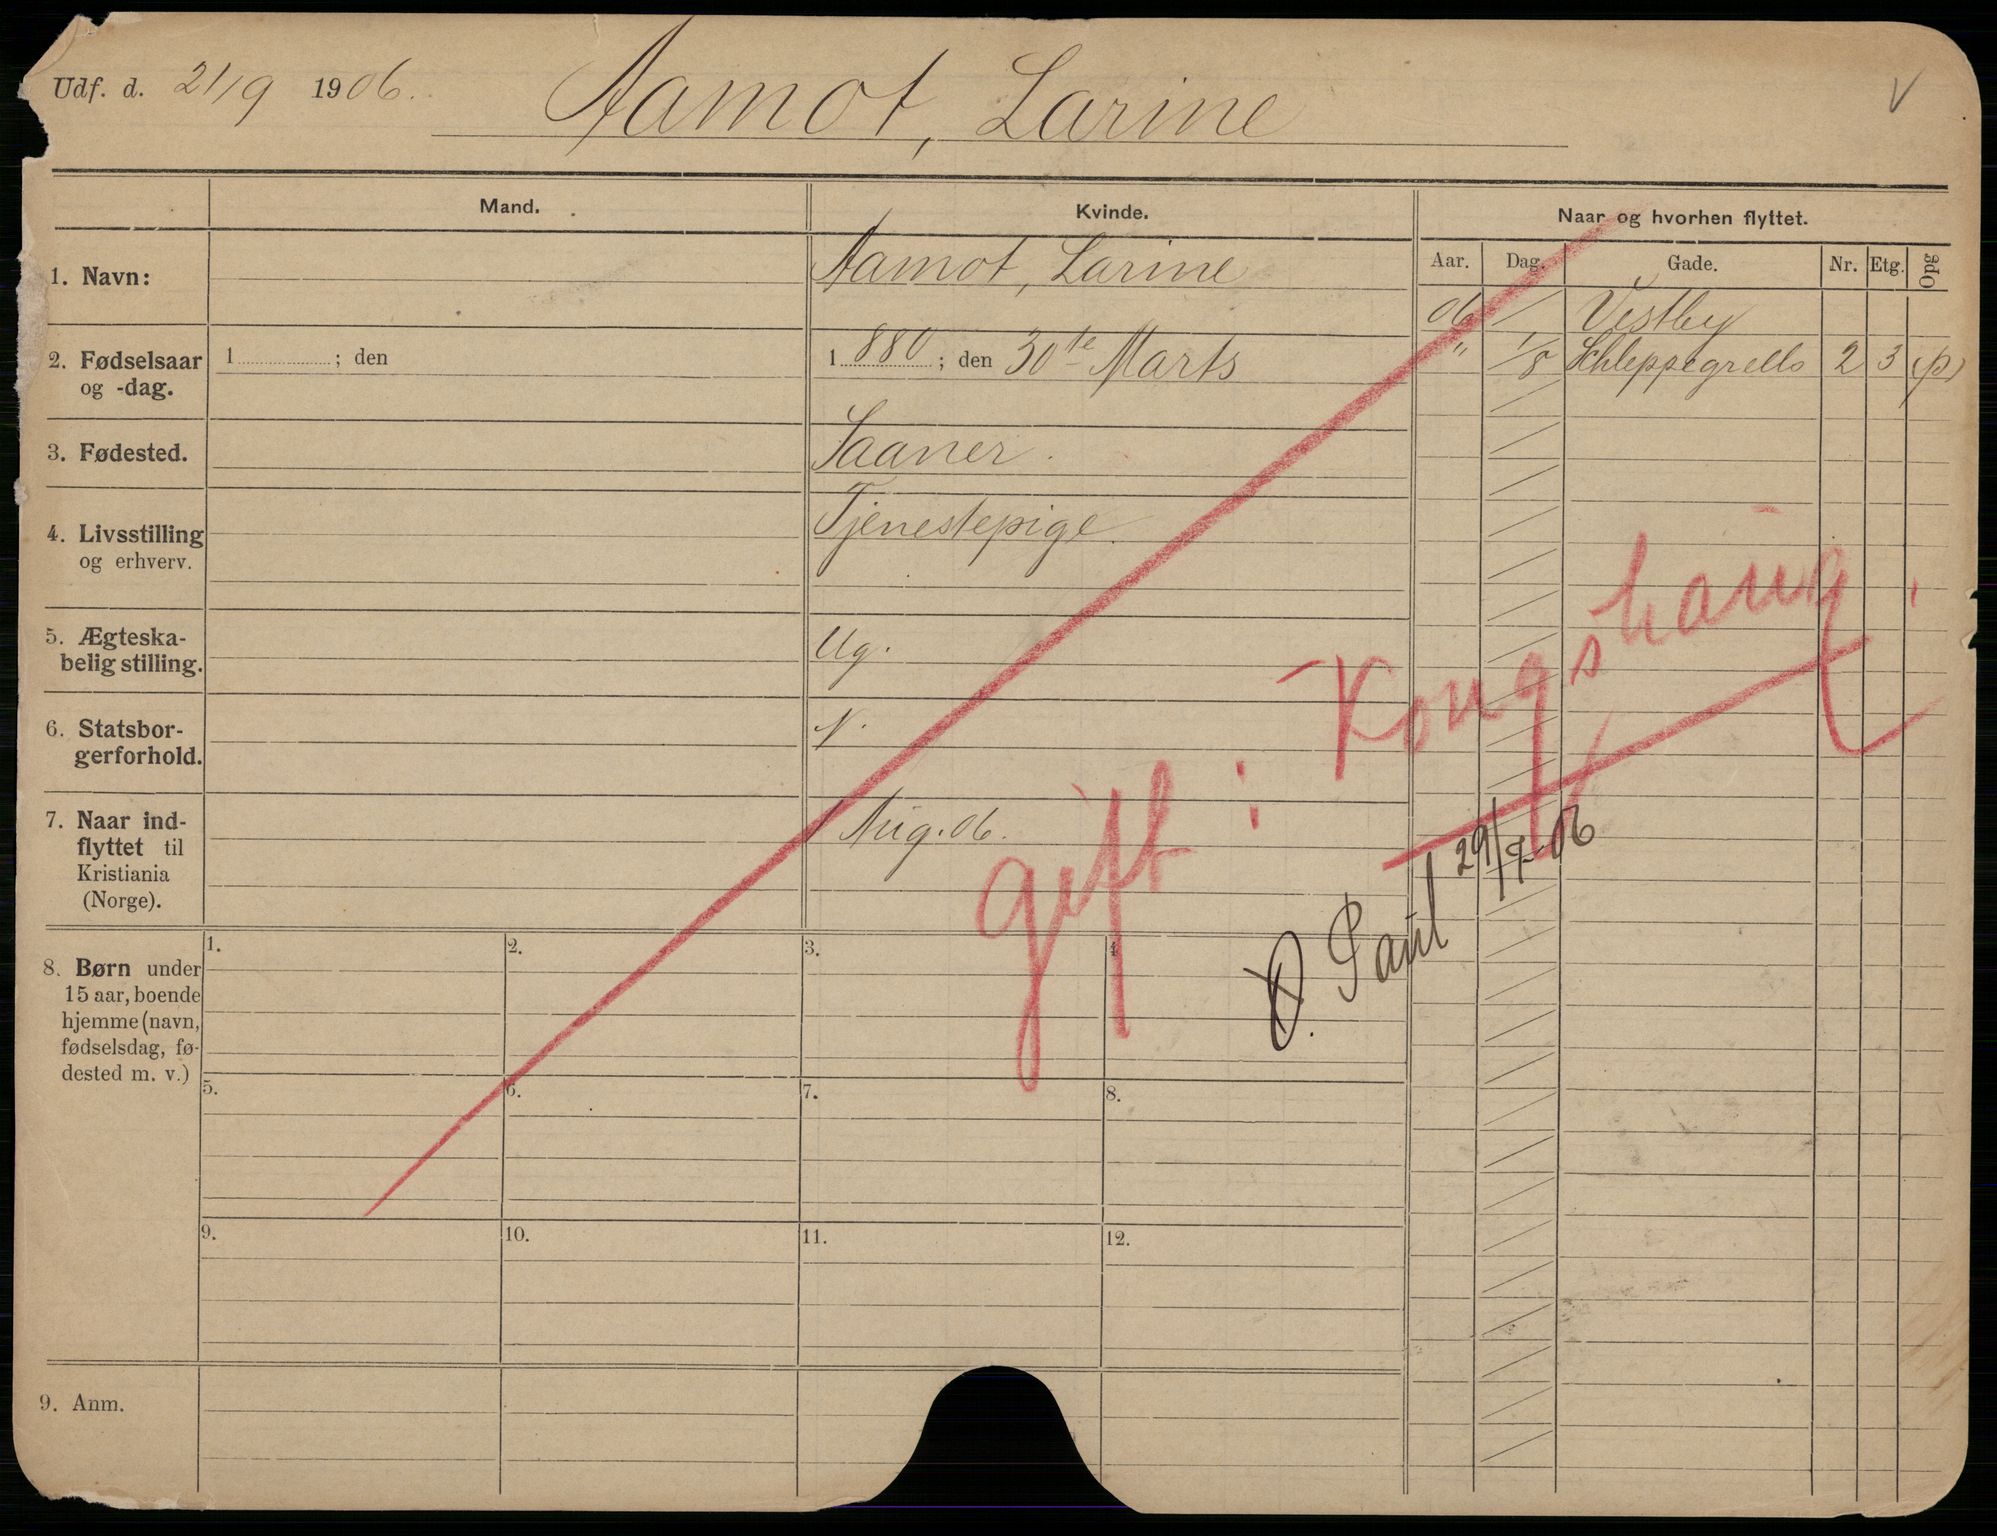 Udf. d. 21/9 1906. Aamot, Larine V
Mand. Kvinde. Naar og hvorhen flyttet.
Aar. Dag. Gade. Nr. Etg. Opg
1. Navn: Aamot, Larine
06 Vestby
2. Fødselsaar og -dag. 1 ; den 1 880 ; den 30te Marts
" 1/8 Schleppegrells 2 3 (p)
3. Fødested. Saaner.
4. Livsstilling og erhverv. Tjenestepige.
5. Ægteska-
belig stilling. Ug.
6. Statsbor-
gerforhold. N.
7. Naar ind-
flyttet til
Kristiania
(Norge). Aug. 06.
gift : Kongshaug.
O. Paul 29/9-06
8. Børn under
15 aar, boende
hjemme (navn,
fødselsdag, fø-
dested m. v.)
1. 2. 3. 4.
5. 6. 7. 8.
9. 10. 11. 12.
9. Anm.